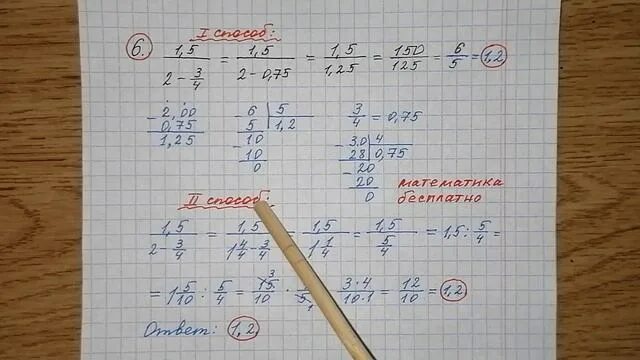 I способ:
6. 1,5/(2 - 3/4) = 1,5/(2 - 0,75) = 1,5/1,25 = 150/125 = 6/5 = 1,2
- 2,00 - 6 | 5 3/4 = 0,75
0,75 5 | 1,2 - 3,0 | 4
1,25 - 10 28 | 0,75
10 - 20
0 20
0
математика
бесплатно
II способ:
1,5/(2 - 3/4) = 1,5/(1 4/4 - 3/4) = 1,5/(1 1/4) = 1,5/(5/4) = 1,5 : 5/4 =
= 1 5/10 : 5/4 = 15/10 · /5 3 1 3·4/10·1 = 12/10 = 1,2
Ответ: 1,2